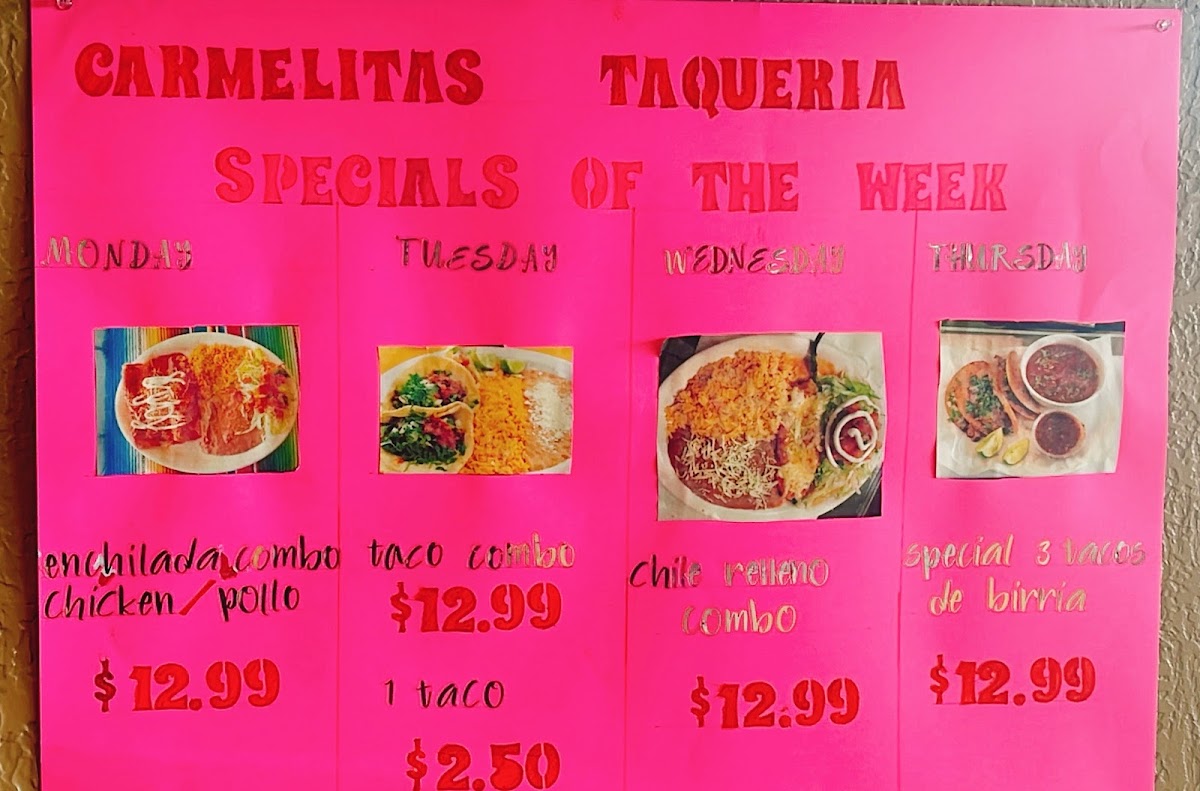 CARMELITAS TAQUERIA
SPECIALS OF THE WEEK
MONDAY
enchilada combo
chicken/pollo
$12.99
TUESDAY
taco combo
$12.99
1 taco
$2.50
WEDNESDAY
chile relleno
combo
$12.99
THURSDAY
special 3 tacos
de birria
$12.99